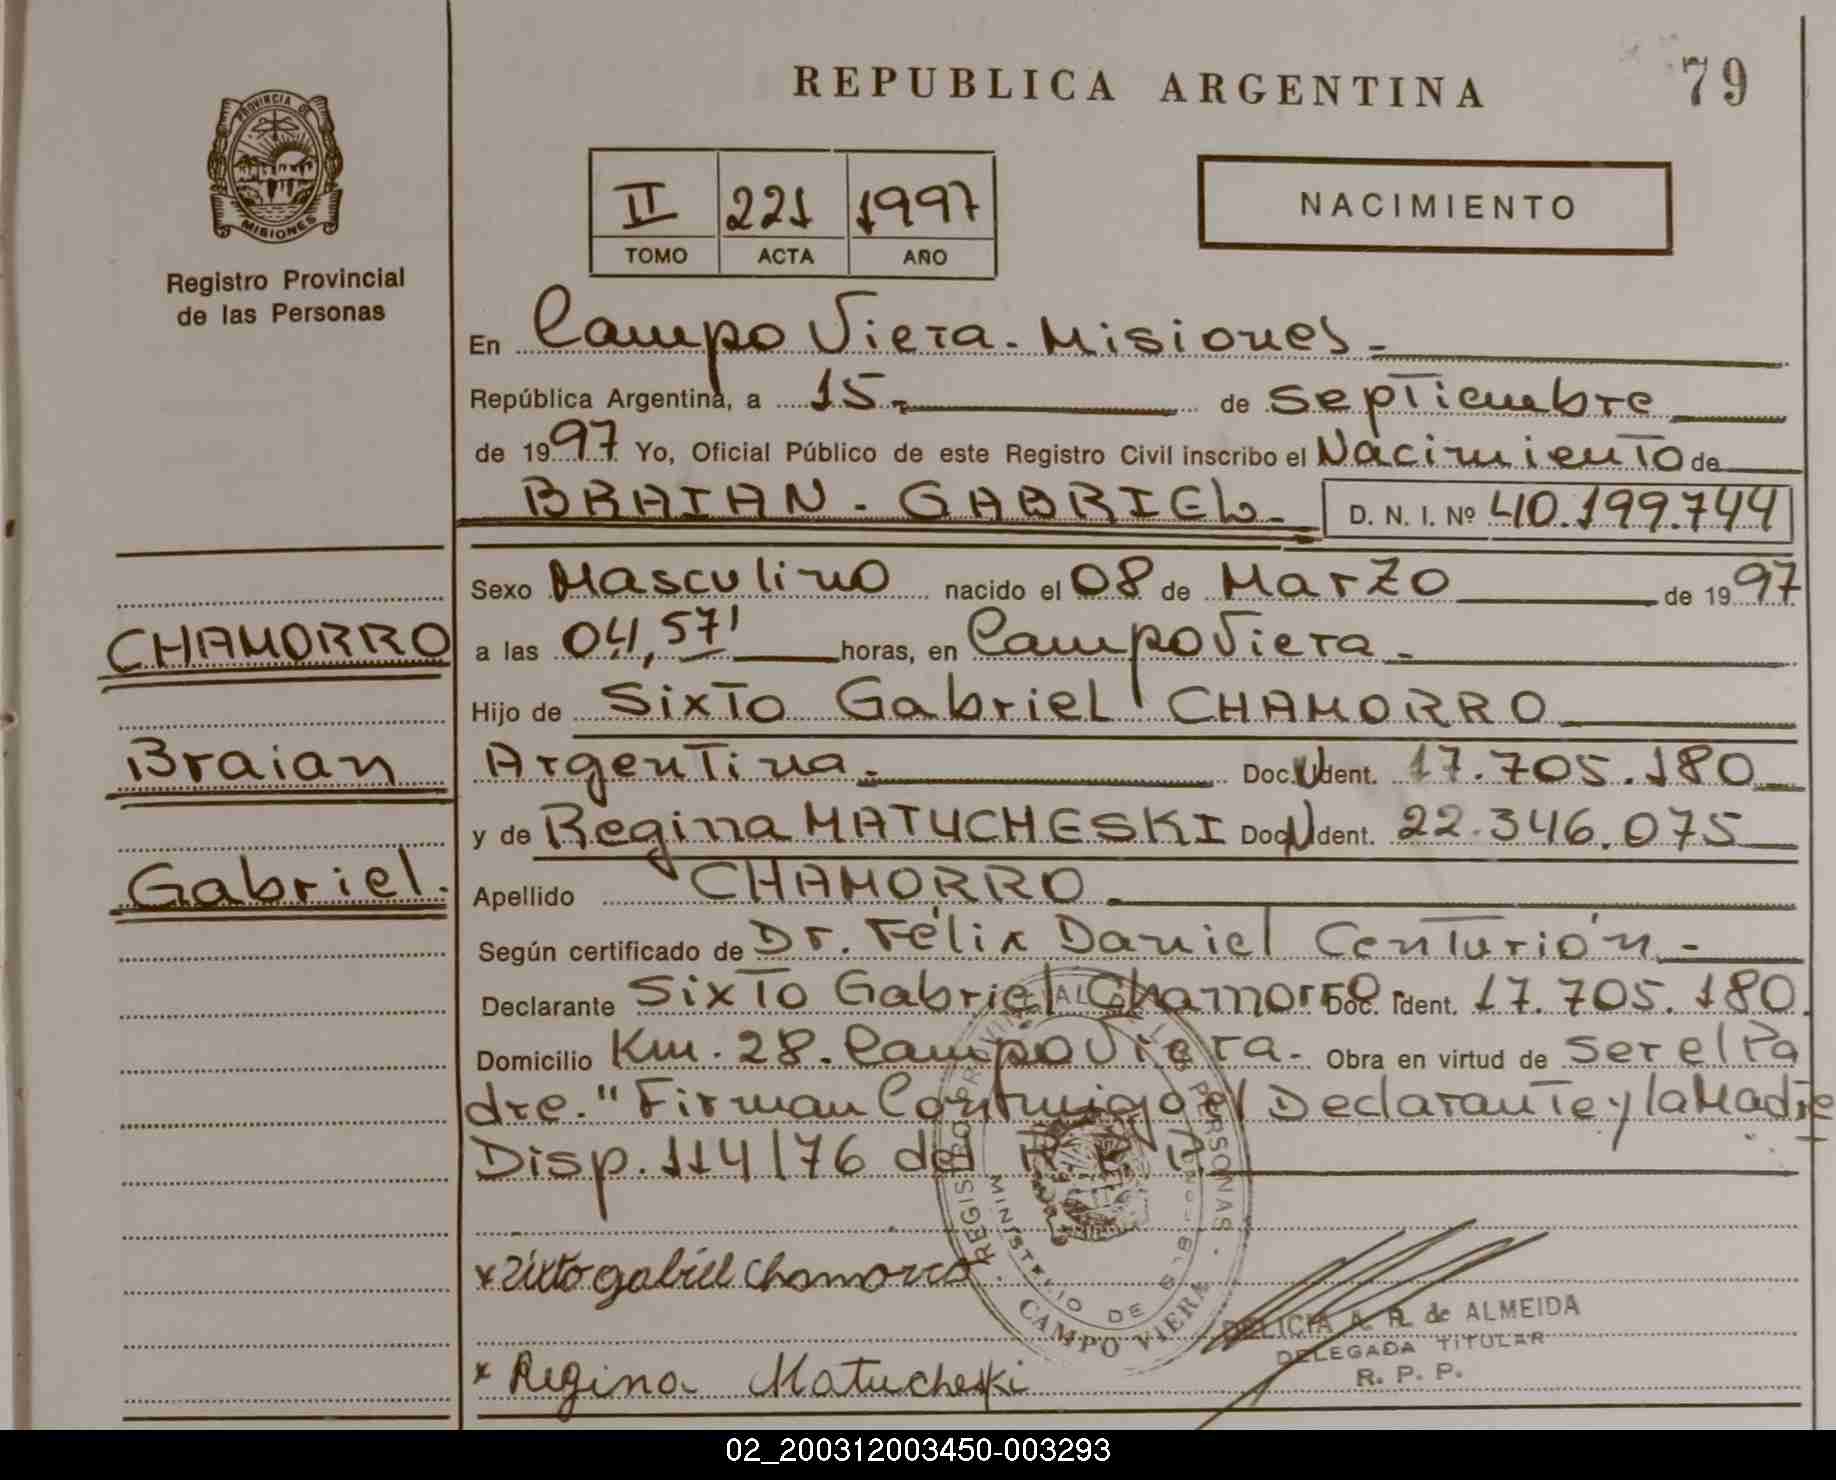 REPUBLICA ARGENTINA
79
PROVINCIA DE
MISIONES
Registro Provincial
de las Personas
II 221 1997
TOMO ACTA AÑO
NACIMIENTO
En Campo Viera - Misiones -
República Argentina, a 15- de Septiembre
de 1997 Yo, Oficial Público de este Registro Civil inscribo el Nacimiento de
BRAIAN - GABRIEL - D. N. I. Nº 40.199.744
Sexo Masculino nacido el 08 de Marzo de 1997
CHAMORRO
a las 04,57' horas, en Campo Viera -
Hijo de Sixto Gabriel CHAMORRO
Braian
Argentina - Doc. U Ident. 17.705.180
y de Regina MATUCHESKI Doc. U Ident. 22.346.075
Gabriel.
Apellido CHAMORRO
Según certificado de Dr. Félix Daniel Centurión -
Declarante Sixto Gabriel Chamorro Doc. Ident. 17.705.180.
Domicilio Km. 28. Campo Viera - Obra en virtud de Ser el Pa
dre. "Firman Conmigo el Declarante y la Madre
Disp. 114/76 del R. P. P.
REGISTRO PROVINCIAL DE LAS PERSONAS
MINISTERIO DE GOBIERNO
CAMPO VIERA
x Sixto gabriel Chamorro.
DELICIA A. R. de ALMEIDA
DELEGADA TITULAR
R. P. P.
x Regina Matucheski
02_200312003450-003293